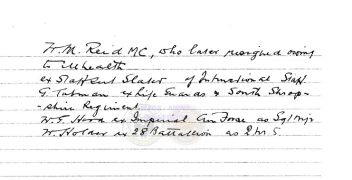 W. M. Reid MC, who later resigned owing
to illhealth
ex Staff Sgt Slater of Instructional Staff.
G. Tubman ex Life Guards & South Shrop-
-shire Regiment
W. S. Hord ex Imperial Air Force as Sgt Mjr
W. Holder ex 28 Battallion as QMS.